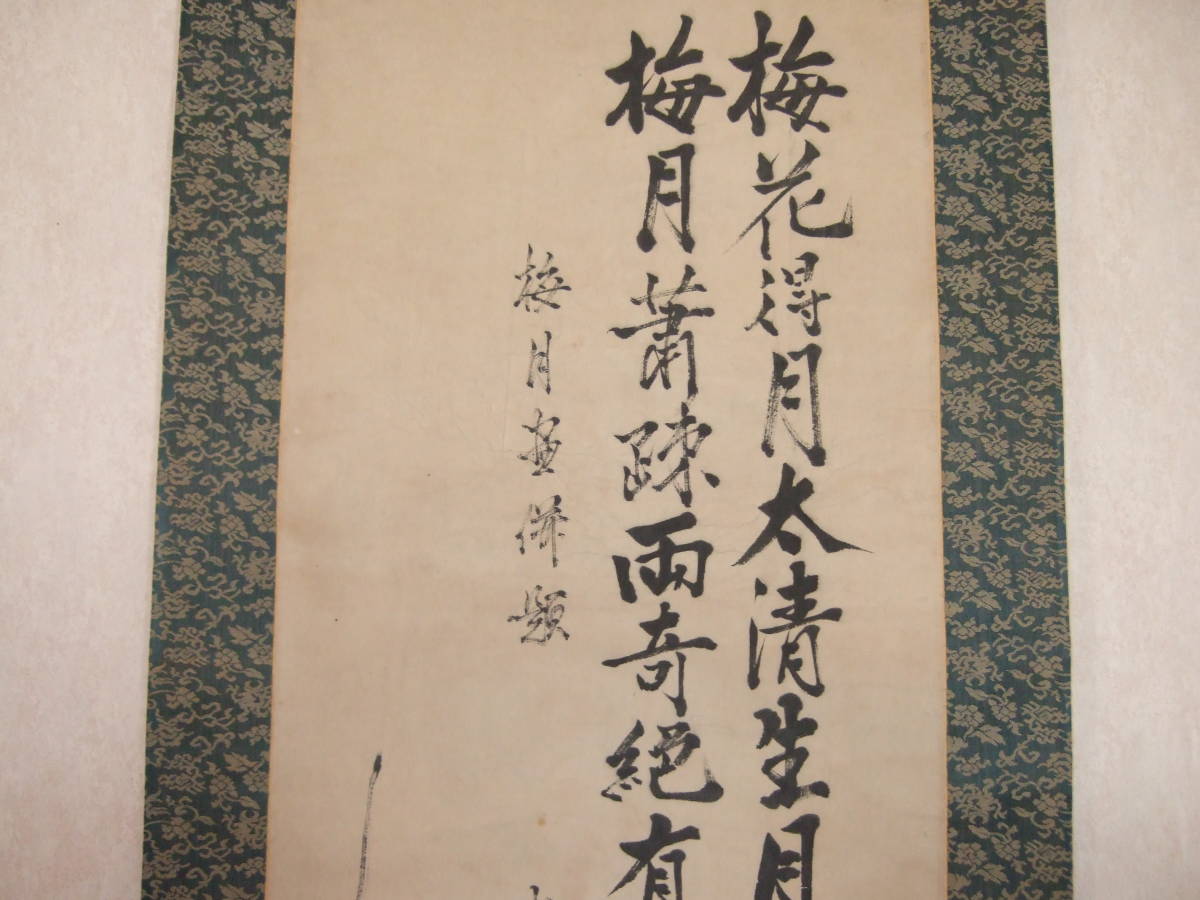 梅花得月太清生月
梅月蕭疎両奇絶有
梅月画併題